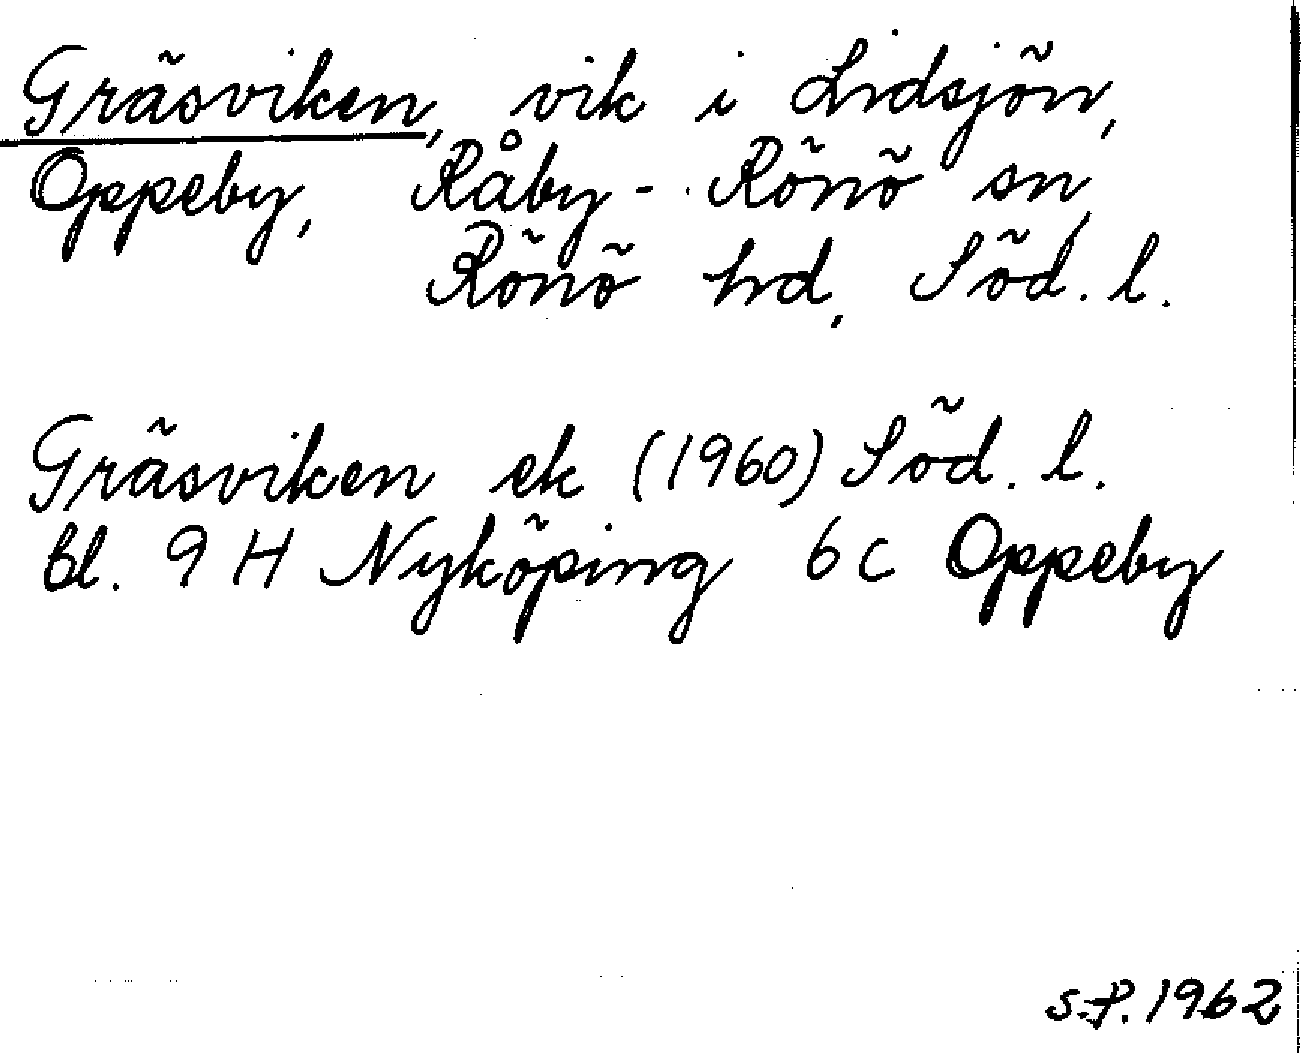 Gräsviken, vik i Lidsjön,
Oppeby, Råby-Rönö sn,
Rönö hd, Söd. l.
Gräsviken ek (1960) Söd. l.
bl. 9 H Nyköping 6 c Oppeby
S.P. 1962